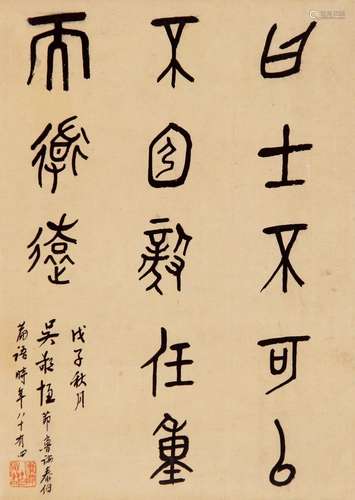 曰士不可以
不弘毅任重
而道遠
戊子秋月
吳敬恆節魯論泰伯
篇語時年八十有四